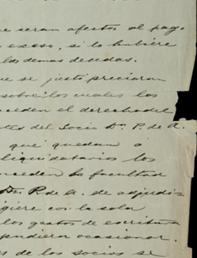 e seran afectos al pago
exceso, si lo hubiere
las demas deudas.
ue se justi preciaran
los cuales los
ceden el derecho del
tes del Socio Dn. P. de A.
que quedan a
liquidatarios los
nceden la facultad
Dn. P. de A. de adjudic
giere con la sola
los gastos de escritura
pudieren ocasionar.
s de los socios se